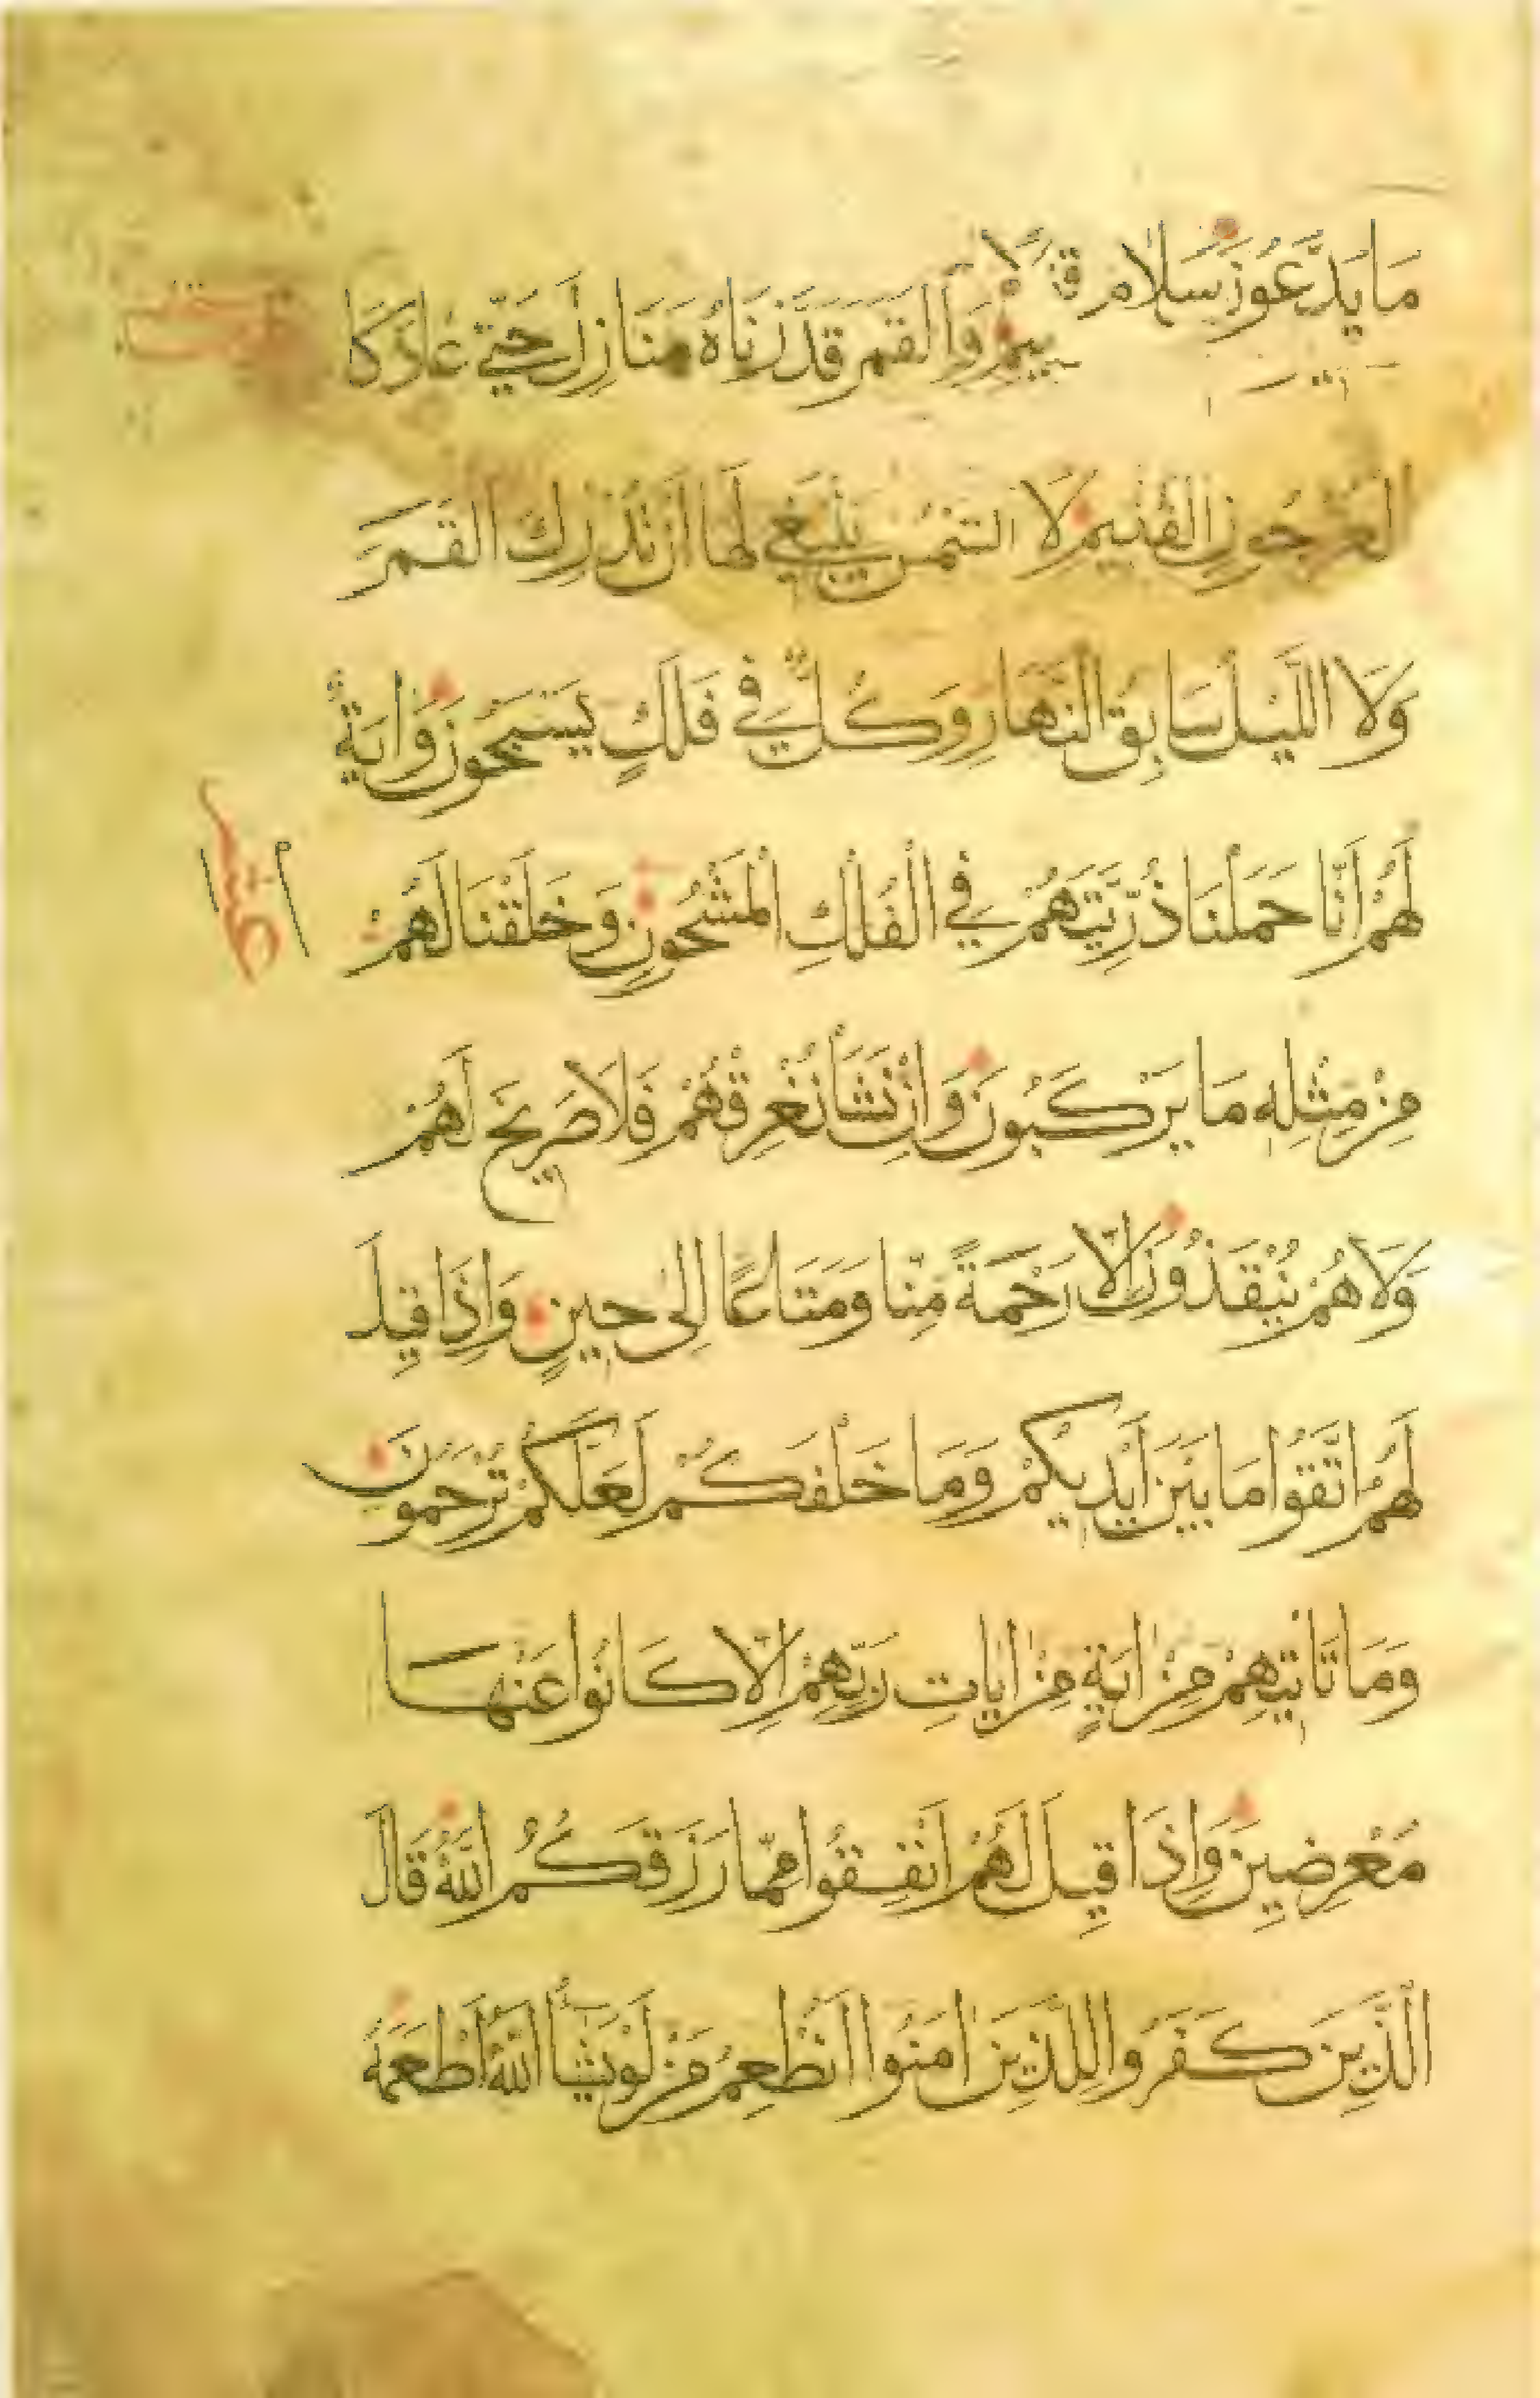 مَا يَدَّعُونَ سَلَامٌ قَوْلًا
وَالْقَمَرَ قَدَّرْنَاهُ مَنَازِلَ حَتَّى عَادَ كَا
لْعُرْجُونِ الْقَدِيمِ لَا الشَّمْسُ يَنْبَغِي لَهَا أَنْ تُدْرِكَ الْقَمَرَ
وَلَا اللَّيْلُ سَابِقُ النَّهَارِ وَكُلٌّ فِي فَلَكٍ يَسْبَحُونَ وَايَةٌ
لَهُمْ أَنَّا حَمَلْنَا ذُرِّيَّتَهُمْ فِي الْفُلْكِ الْمَشْحُونِ وَخَلَقْنَا لَهُمْ
مِنْ مِثْلِهِ مَا يَرْكَبُونَ وَإِنْ نَشَأْ نُغْرِقْهُمْ فَلَا صَرِيخَ لَهُمْ
وَلَا هُمْ يُنْقَذُونَ إِلَّا رَحْمَةً مِنَّا وَمَتَاعًا إِلَى حِينٍ وَإِذَا قِيلَ
لَهُمُ اتَّقُوا مَا بَيْنَ أَيْدِيكُمْ وَمَا خَلْفَكُمْ لَعَلَّكُمْ تُرْحَمُونَ
وَمَا تَاتِيهِمْ مِنْ ايَةٍ مِنْ ايَاتِ رَبِّهِمْ إِلَّا كَانُوا عَنْهَا
مُعْرِضِينَ وَإِذَا قِيلَ لَهُمْ أَنْفِقُوا مِمَّا رَزَقَكُمُ اللَّهُ قَالَ
الَّذِينَ كَفَرُوا لِلَّذِينَ امَنُوا أَنُطْعِمُ مَنْ لَوْ يَشَأُ اللَّهُ أَطْعَمَهُ